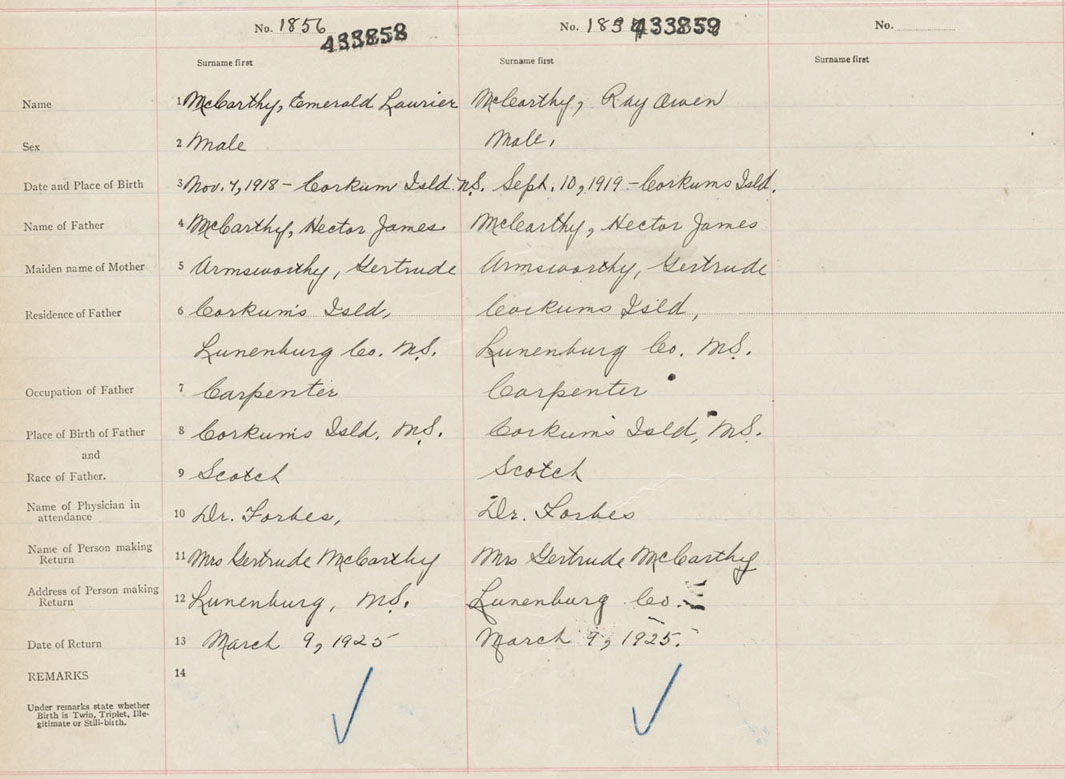 No. 1856 433858 No. 1857 433859 No.
Surname first Surname first Surname first
Name 1 McCarthy, Emerald Laurier McCarthy, Ray Owen
Sex 2 Male Male,
Date and Place of Birth 3 Nov. 7, 1918 - Corkum Isld. N.S. Sept. 10, 1919 - Corkums Isld.
Name of Father 4 McCarthy, Hector James McCarthy, Hector James
Maiden name of Mother 5 Armsworthy, Gertrude Armsworthy, Gertrude
Residence of Father 6 Corkum's Isld, Corkums Isld,
Lunenburg Co. N.S. Lunenburg Co. N.S.
Occupation of Father 7 Carpenter Carpenter
Place of Birth of Father 8 Corkum's Isld. N.S. Corkum's Isld, N.S.
and
Race of Father. 9 Scotch Scotch
Name of Physician in
attendance 10 Dr. Forbes, Dr. Forbes
Name of Person making
Return 11 Mrs Gertrude McCarthy Mrs Gertrude McCarthy
Address of Person making
Return 12 Lunenburg, N.S. Lunenburg Co.
Date of Return 13 March 9, 1925 March 9, 1925.
REMARKS 14
Under remarks state whether
Birth is Twin, Triplet, Ille-
gitimate or Still-birth.